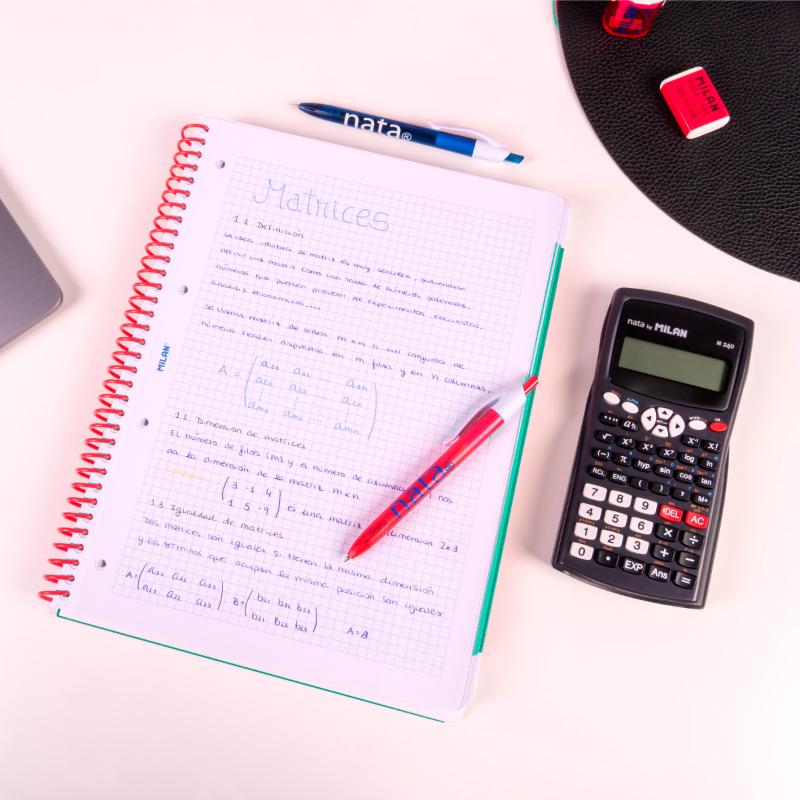 MILAN
MILAN
nata®
Matrices
1.1. Definición
La idea intuitiva de matriz es muy sencilla, pudiéndose
definir una matriz como una tabla de números ordenados,
números que pueden provenir de experimentos, encuestas,
análisis económicos....
Se llama matriz de orden m x n a un conjunto de
números reales dispuestos en m filas y en n columnas.
A = ( a11 a12 ... a1n
a22 a22 ... a2n
am1 am2 ... amn )
MILAN®
1.2. Dimensión de matrices
El número de filas (m) y el número de columnas nos
da la dimensión de la matriz m x n
( 3 -1 4
1 5 -9 ) es una matriz dimensión 2x3
1.3. Igualdad de matrices
Dos matrices son iguales si tienen la misma dimensión
y los términos que ocupan la misma posición son iguales
A= B= A=B
nata®
nata by MILAN
M 240
ALPHA
MODE
ON
x⁻¹ x!
√ x² log ln
(-) π hyp sin cos tan
RCL ENG ( ) , M+
7 8 9 DEL AC
4 5 6 × ÷
1 2 3 + −
0 • EXP Ans =